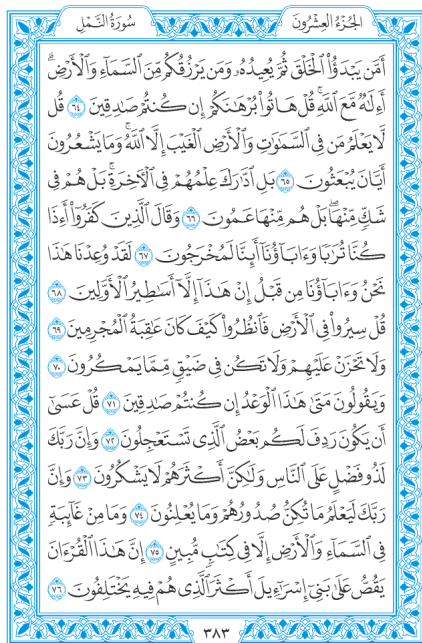 الجُزْءُ العِشْرُونَ
سُورَةُ النَّمْلِ
أَمَّن يَبْدَؤُا۟ ٱلْخَلْقَ ثُمَّ يُعِيدُهُۥ وَمَن يَرْزُقُكُم مِّنَ ٱلسَّمَآءِ وَٱلْأَرْضِ ۗ
أَءِلَٰهٌ مَّعَ ٱللَّهِ ۚ قُلْ هَاتُوا۟ بُرْهَٰنَكُمْ إِن كُنتُمْ صَٰدِقِينَ ٦٤ قُل
لَّا يَعْلَمُ مَن فِى ٱلسَّمَٰوَٰتِ وَٱلْأَرْضِ ٱلْغَيْبَ إِلَّا ٱللَّهُ ۚ وَمَا يَشْعُرُونَ
أَيَّانَ يُبْعَثُونَ ٦٥ بَلِ ٱدَّٰرَكَ عِلْمُهُمْ فِى ٱلْءَاخِرَةِ ۚ بَلْ هُمْ فِى
شَكٍّ مِّنْهَا ۖ بَلْ هُم مِّنْهَا عَمُونَ ٦٦ وَقَالَ ٱلَّذِينَ كَفَرُوٓا۟ أَءِذَا
كُنَّا تُرَٰبًا وَءَابَآؤُنَآ أَئِنَّا لَمُخْرَجُونَ ٦٧ لَقَدْ وُعِدْنَا هَٰذَا
نَحْنُ وَءَابَآؤُنَا مِن قَبْلُ إِنْ هَٰذَآ إِلَّآ أَسَٰطِيرُ ٱلْأَوَّلِينَ ٦٨
قُلْ سِيرُوا۟ فِى ٱلْأَرْضِ فَٱنظُرُوا۟ كَيْفَ كَانَ عَٰقِبَةُ ٱلْمُجْرِمِينَ ٦٩
وَلَا تَحْزَنْ عَلَيْهِمْ وَلَا تَكُن فِى ضَيْقٍ مِّمَّا يَمْكُرُونَ ٧٠
وَيَقُولُونَ مَتَىٰ هَٰذَا ٱلْوَعْدُ إِن كُنتُمْ صَٰدِقِينَ ٧١ قُلْ عَسَىٰٓ
أَن يَكُونَ رَدِفَ لَكُم بَعْضُ ٱلَّذِى تَسْتَعْجِلُونَ ٧٢ وَإِنَّ رَبَّكَ
لَذُو فَضْلٍ عَلَى ٱلنَّاسِ وَلَٰكِنَّ أَكْثَرَهُمْ لَا يَشْكُرُونَ ٧٣ وَإِنَّ
رَبَّكَ لَيَعْلَمُ مَا تُكِنُّ صُدُورُهُمْ وَمَا يُعْلِنُونَ ٧٤ وَمَا مِنْ غَآئِبَةٍ
فِى ٱلسَّمَآءِ وَٱلْأَرْضِ إِلَّا فِى كِتَٰبٍ مُّبِينٍ ٧٥ إِنَّ هَٰذَا ٱلْقُرْءَانَ
يَقُصُّ عَلَىٰ بَنِىٓ إِسْرَٰٓءِيلَ أَكْثَرَ ٱلَّذِى هُمْ فِيهِ يَخْتَلِفُونَ ٧٦
٣٨٣